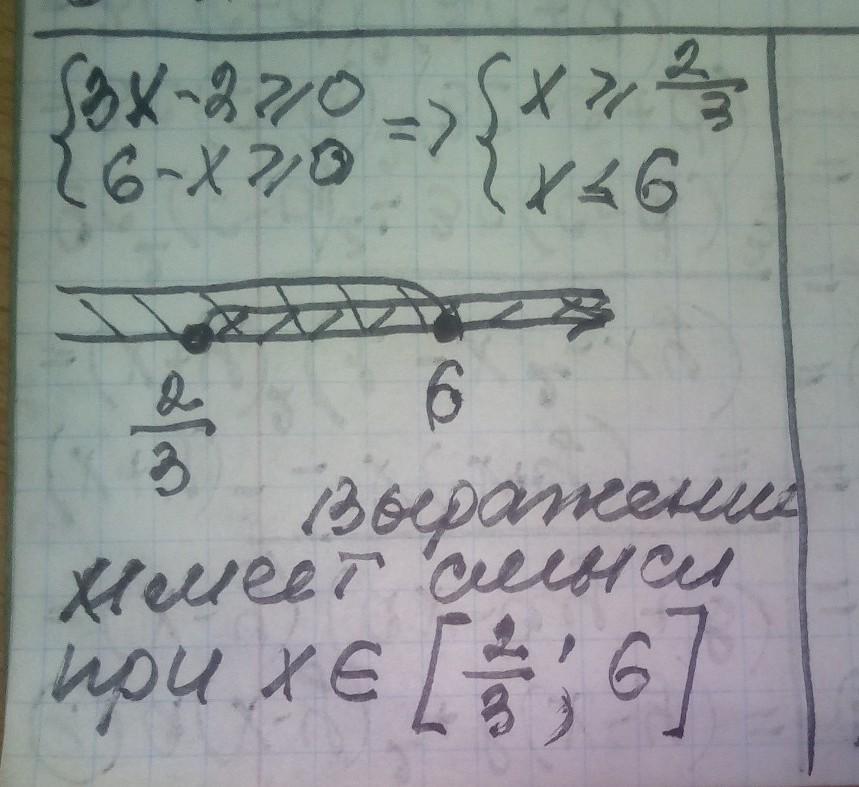 {3x-2⩾0 => {x⩾2/3
{6-x⩾0 {x≤6
2/3 6
Выражение
имеет смысл
при x∈[2/3; 6]